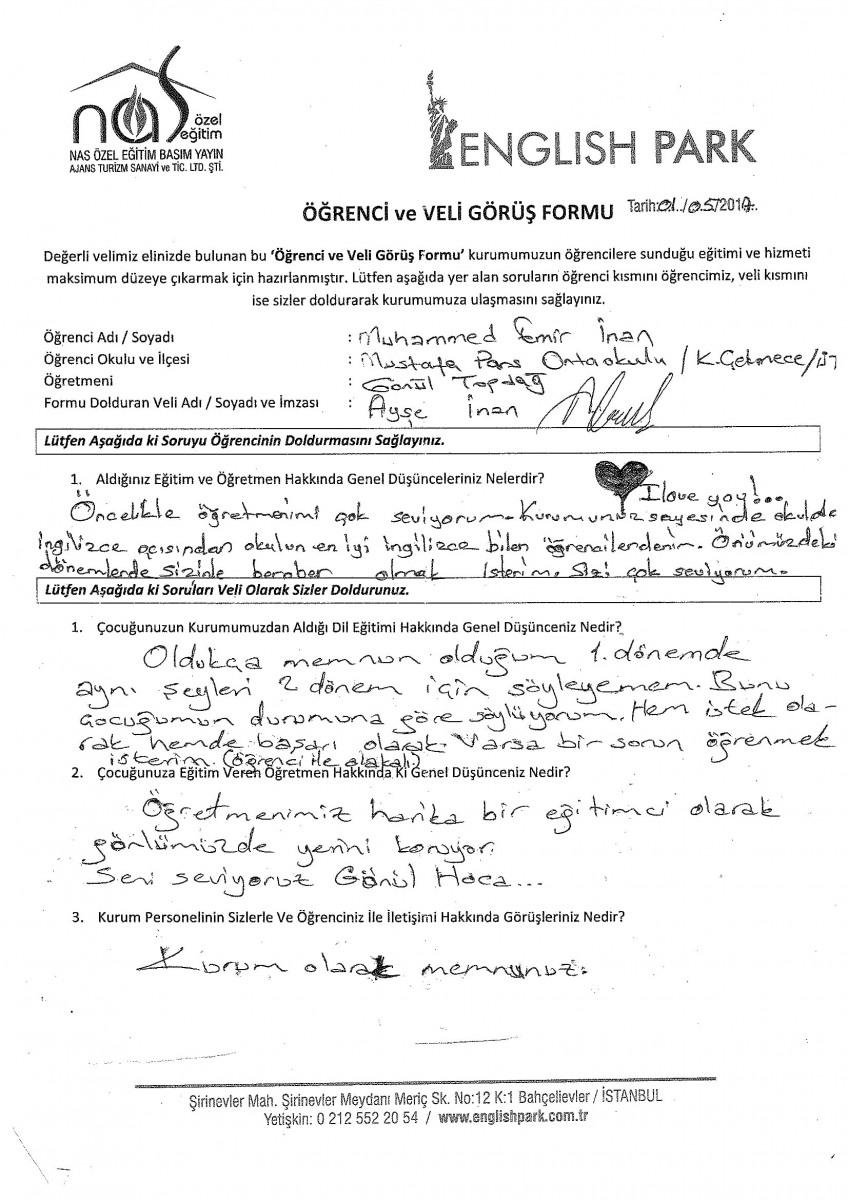 nas özel eğitim
NAS ÖZEL EĞİTİM BASIM YAYIN
AJANS TURİZM SANAYİ ve TİC. LTD. ŞTİ.
ENGLISH PARK
ÖĞRENCİ ve VELİ GÖRÜŞ FORMU Tarih:01../05/2017..
Değerli velimiz elinizde bulunan bu 'Öğrenci ve Veli Görüş Formu' kurumumuzun öğrencilere sunduğu eğitimi ve hizmeti
maksimum düzeye çıkarmak için hazırlanmıştır. Lütfen aşağıda yer alan soruların öğrenci kısmını öğrencimiz, veli kısmını
ise sizler doldurarak kurumumuza ulaşmasını sağlayınız.
Öğrenci Adı / Soyadı : Muhammed Emir İnan
Öğrenci Okulu ve İlçesi : Mustafa Pars Ortaokulu / K.Çekmece/İST
Öğretmeni : Gönül Topdağ
Formu Dolduran Veli Adı / Soyadı ve İmzası : Ayşe İnan
Lütfen Aşağıda ki Soruyu Öğrencinin Doldurmasını Sağlayınız.
1. Aldığınız Eğitim ve Öğretmen Hakkında Genel Düşünceleriniz Nelerdir?
I love yoy!...
Öncelikle öğretmenimi çok seviyorum. Kurumunuz sayesinde okulda
ingilizce açısından okulun en iyi ingilizce bilen öğrencilerdenim. Önümüzdeki
dönemlerde sizinle beraber olmak isterim. Sizi çok seviyorum.
Lütfen Aşağıda ki Soruları Veli Olarak Sizler Doldurunuz.
1. Çocuğunuzun Kurumumuzdan Aldığı Dil Eğitimi Hakkında Genel Düşünceniz Nedir?
Oldukça memnun olduğum 1. dönemde
aynı şeyleri 2 dönem için söyleyemem. Bunu
çocuğumun durumuna göre söylüyorum. Hem istek ola-
rak hemde başarı olarak. Varsa bir sorun öğrenmek
isterim. (öğrenci ile alakalı)
2. Çocuğunuza Eğitim Veren Öğretmen Hakkında Ki Genel Düşünceniz Nedir?
Öğretmenimiz harika bir eğitimci olarak
gönlümüzde yerini koruyor.
Seni seviyoruz Gönül Hoca...
3. Kurum Personelinin Sizlerle Ve Öğrenciniz İle İletişimi Hakkında Görüşleriniz Nedir?
Kurum olarak memnunuz.
Şirinevler Mah. Şirinevler Meydanı Meriç Sk. No:12 K:1 Bahçelievler / İSTANBUL
Yetişkin: 0 212 552 20 54 / www.englishpark.com.tr